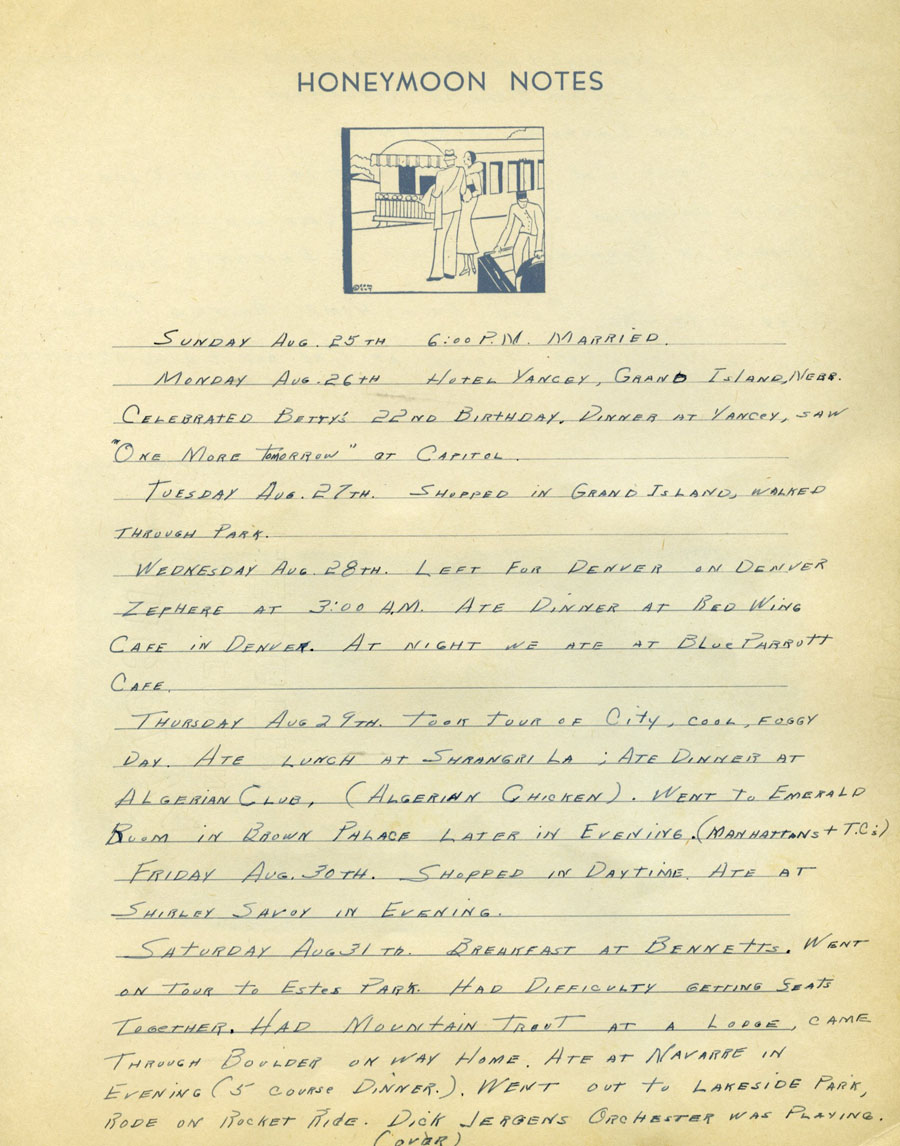 HONEYMOON NOTES
SUNDAY AUG. 25TH 6:00 P.M. MARRIED.
MONDAY AUG. 26TH HOTEL YANCEY, GRAND ISLAND, NEBR.
CELEBRATED BETTY'S 22ND BIRTHDAY. DINNER AT YANCEY, SAW
"ONE MORE TOMORROW" AT CAPITOL.
TUESDAY AUG. 27TH. SHOPPED IN GRAND ISLAND, WALKED
THROUGH PARK.
WEDNESDAY AUG. 28TH. LEFT FOR DENVER ON DENVER
ZEPHERE AT 3:00 A.M. ATE DINNER AT RED WING
CAFE IN DENVER. AT NIGHT WE ATE AT BLUE PARROTT
CAFE.
THURSDAY AUG 29TH. TOOK TOUR OF CITY, COOL, FOGGY
DAY. ATE LUNCH AT SHRANGRI LA ; ATE DINNER AT
ALGERIAN CLUB, (ALGERIAN CHICKEN). WENT TO EMERALD
ROOM IN BROWN PALACE LATER IN EVENING. (MANHATTANS + T.C.'s)
FRIDAY AUG. 30TH. SHOPPED IN DAYTIME. ATE AT
SHIRLEY SAVOY IN EVENING.
SATURDAY AUG 31TH. BREAKFAST AT BENNETTS. WENT
ON TOUR TO ESTES PARK. HAD DIFFICULTY GETTING SEATS
TOGETHER. HAD MOUNTAIN TROUT AT A LODGE, CAME
THROUGH BOULDER ON WAY HOME. ATE AT NAVARRE IN
EVENING (5 COURSE DINNER.). WENT OUT TO LAKESIDE PARK,
RODE ON ROCKET RIDE. DICK JERGENS ORCHESTER WAS PLAYING.
(OVER)